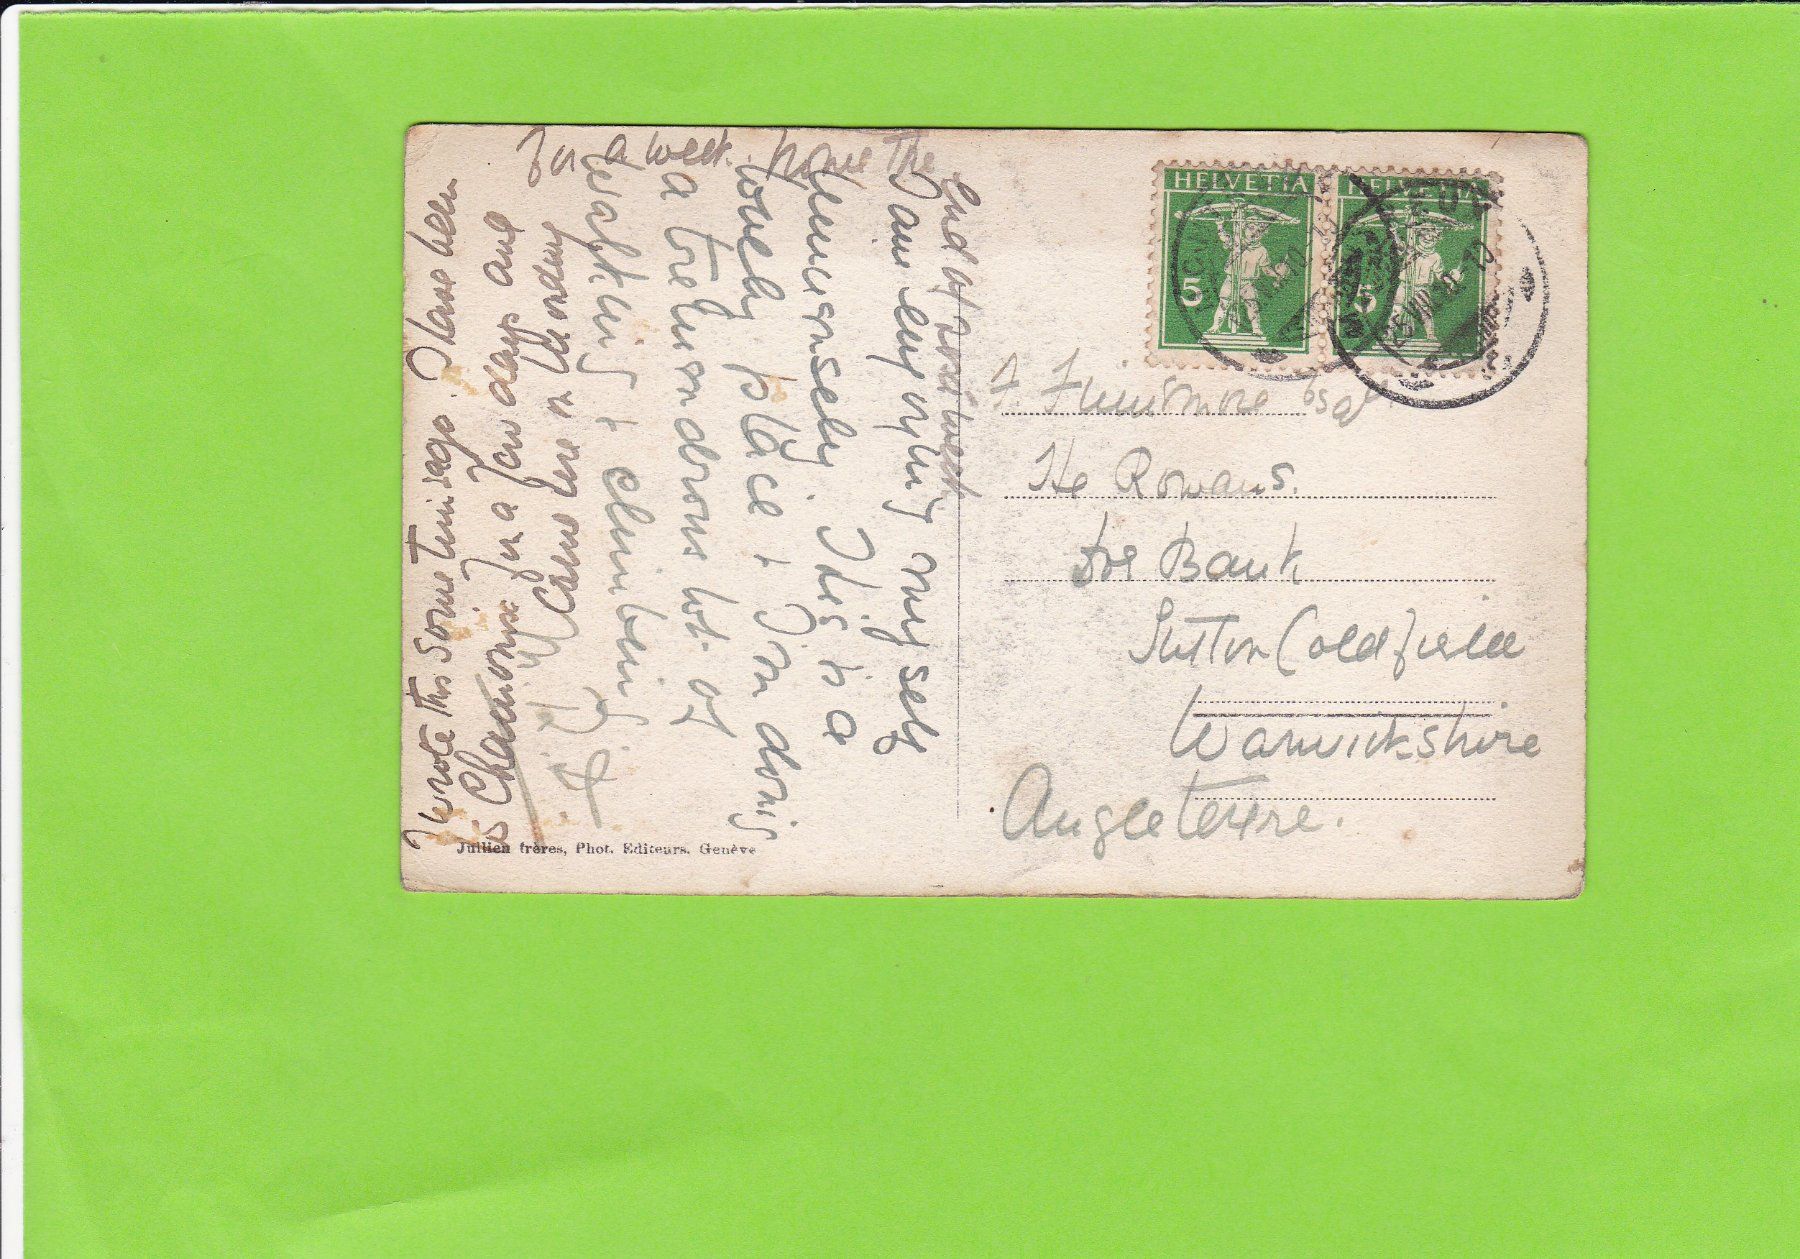 I am enjoying myself
immensely. This is a
lovely place & I am doing
a tremendous lot of
walking & climbing
I wrote this some time ago. Have been
is Chamonix for a few days and
came here on Monday
for a week. Home the
end of next week
HELVETIA
5
HELVETIA
5
F. Finnemore Esq
The Rowans.
Four Oaks
Sutton Coldfield
Warwickshire
Angleterre.
Jullien frères, Phot. Editeurs. Genève